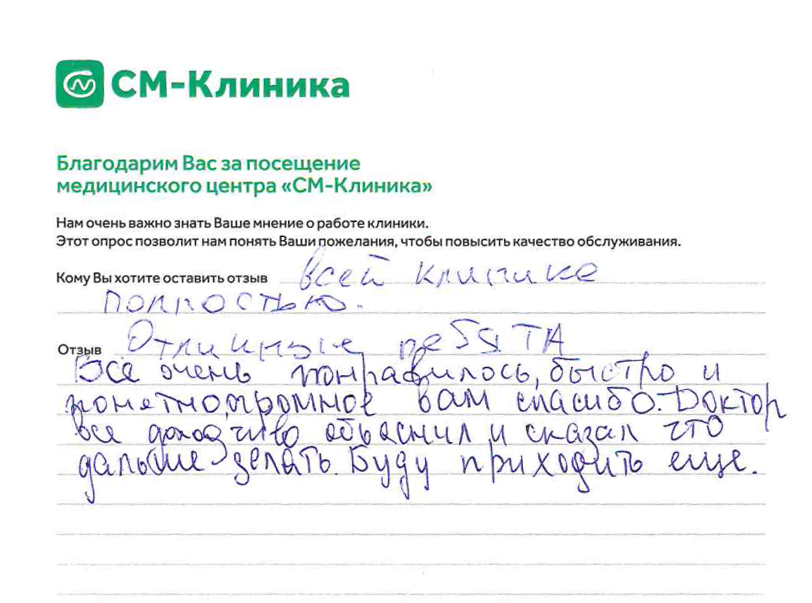 СМ-Клиника
Благодарим Вас за посещение
медицинского центра «СМ-Клиника»
Нам очень важно знать Ваше мнение о работе клиники.
Этот опрос позволит нам понять Ваши пожелания, чтобы повысить качество обслуживания.
Кому Вы хотите оставить отзыв всей клинике
полностью.
Отзыв Отличные ребята
Все очень понравилось, быстро и
понятно, огромное вам спасибо. Доктор
все доходчиво объяснил и сказал что
дальше делать. Буду приходить еще.